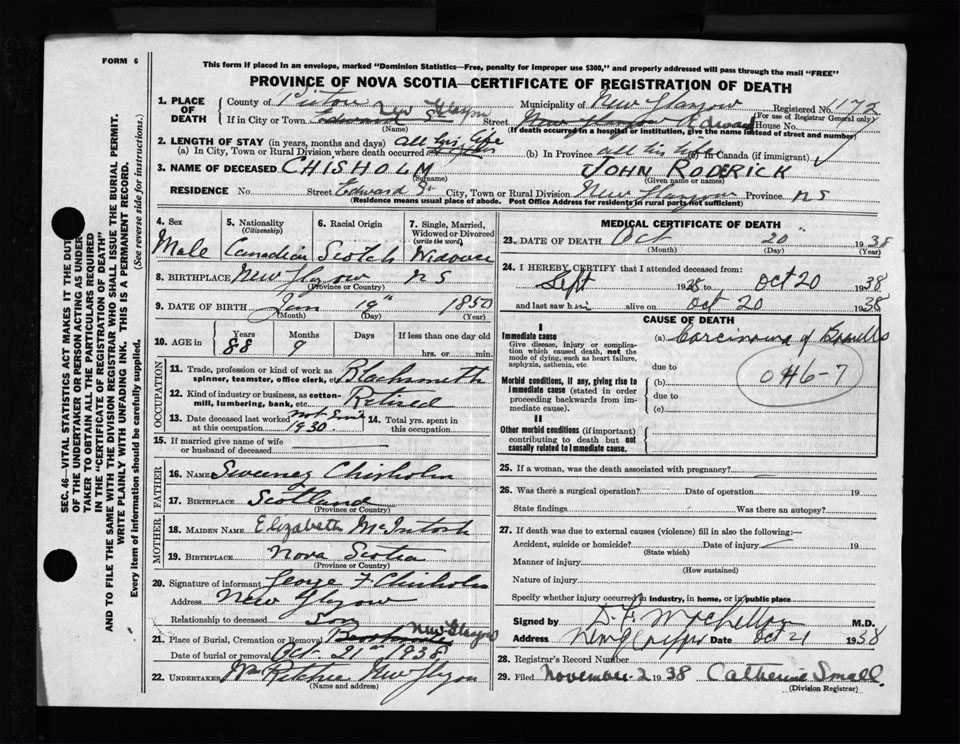 FORM 6
This form if placed in an envelope, marked "Dominion Statistics—Free, penalty for improper use $300," and properly addressed will pass through the mail "FREE"
PROVINCE OF NOVA SCOTIA—CERTIFICATE OF REGISTRATION OF DEATH
SEC. 46—VITAL STATISTICS ACT MAKES IT THE DUTY
OF THE UNDERTAKER OR PERSON ACTING AS UNDER-
TAKER TO OBTAIN ALL THE PARTICULARS REQUIRED
IN THE "CERTIFICATE OF REGISTRATION OF DEATH"
AND TO FILE THE SAME WITH THE DIVISION REGISTRAR WHO SHALL ISSUE THE BURIAL PERMIT.
WRITE PLAINLY WITH UNFADING INK. THIS IS A PERMANENT RECORD.
Every item of information should be carefully supplied. (See reverse side for instructions.)
1. PLACE OF DEATH County of Pictou Municipality of New Glasgow Registered No. 172
(For use of Registrar General only)
If in City or Town New Glasgow Edward St Street New Glasgow Edward House No.
(Name) (If death occurred in a hospital or institution, give the name instead of street and number)
2. LENGTH OF STAY (in years, months and days)
(a) In City, Town or Rural Division where death occurred all his life (b) In Province all his life (c) In Canada (if immigrant)
3. NAME OF DECEASED CHISHOLM JOHN RODERICK
(Surname) (Given name or names)
RESIDENCE No. Street Edward St City, Town or Rural Division New Glasgow Province NS
(Residence means usual place of abode. Post Office Address for residents in rural parts not sufficient)
4. Sex Male
5. Nationality (Citizenship) Canadian
6. Racial Origin Scotch
7. Single, Married, Widowed or Divorced (write the word)
8. BIRTHPLACE New Glasgow NS
(Province or Country)
9. DATE OF BIRTH Jan 9" 1850
(Month) (Day) (Year)
10. AGE in Years 88 Months 9 Days If less than one day old
hrs. or min.
OCCUPATION
11. Trade, profession or kind of work as spinner, teamster, office clerk, etc. Blacksmith
12. Kind of industry or business, as cotton-mill, lumbering, bank, etc. Retired
13. Date deceased last worked at this occupation 1930
14. Total yrs. spent in this occupation
15. If married give name of wife or husband of deceased
FATHER
16. NAME Sweeney Chisholm
17. BIRTHPLACE Scotland
(Province or Country)
MOTHER
18. MAIDEN NAME Elizabeth McIntosh
19. BIRTHPLACE Nova Scotia
(Province or Country)
20. Signature of informant George F Chisholm
Address New Glasgow
Relationship to deceased Son
21. Place of Burial, Cremation or Removal New Glasgow
Date of burial or removal Oct 21st 1938
22. UNDERTAKER Wm Ritchie New Glasgow
(Name and address)
MEDICAL CERTIFICATE OF DEATH
23. DATE OF DEATH Oct 20" 1938
(Month) (Day) (Year)
24. I HEREBY CERTIFY that I attended deceased from:
Sept 1938 to Oct 20 1938
and last saw him alive on Oct 20 1938
CAUSE OF DEATH
I
Immediate cause
Give disease, injury or complication which caused death, not the mode of dying, such as heart failure, asphyxia, asthenia, etc.
(a) Carcinoma of Bowells
due to
Morbid conditions, if any, giving rise to immediate cause (stated in order proceeding backwards from immediate cause).
(b)
due to
(c)
046-7
II
Other morbid conditions (if important) contributing to death but not causally related to immediate cause.
25. If a woman, was the death associated with pregnancy?
26. Was there a surgical operation? Date of operation 19
State findings Was there an autopsy?
27. If death was due to external causes (violence) fill in also the following:—
Accident, suicide or homicide? Date of injury 19
(State which)
Manner of injury
(How sustained)
Nature of injury
Specify whether injury occurred in industry, in home, or in public place
Signed by M.D.
Address Date Oct 21 1938
28. Registrar's Record Number
29. Filed November 2 1938 Catherine Small
(Division Registrar)